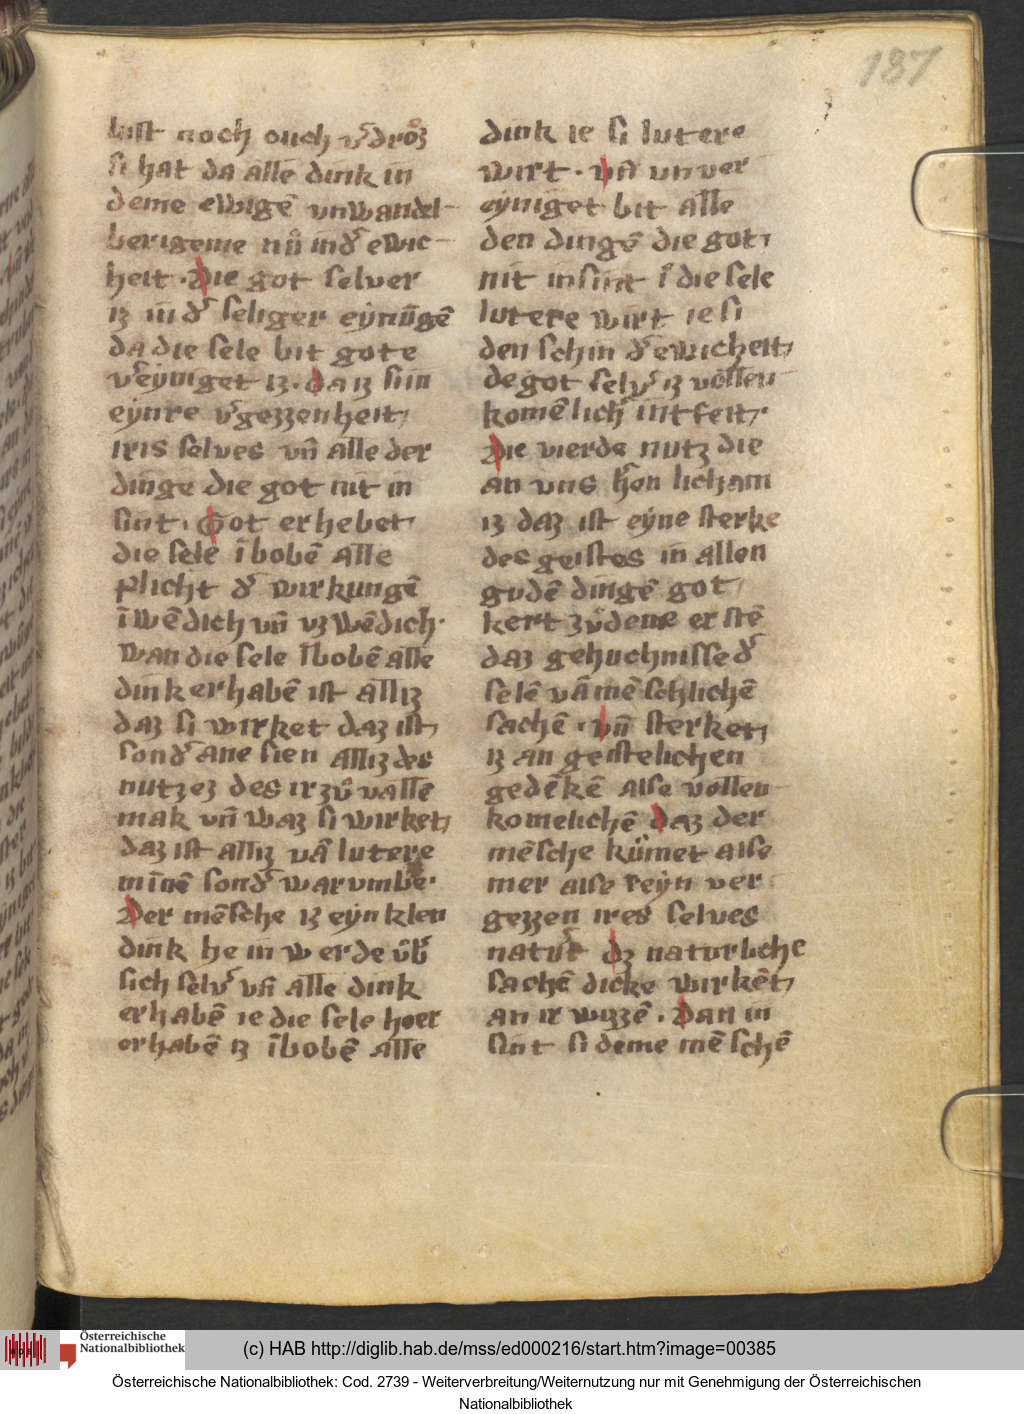 187
lust noch ouch v̓droͤʒ
si hat da alle dink in
deme ewigē vnwandel-
berigeme nuͦ in d̓ ewic-
heit. Die got selver
iʒ in d̓ seliger eynūgē
da die sele bit gote
v̓eyniget iʒ. daʒ sun
eynre v̓geʒʒenheit
iris selves vn̄ alle der
dinge die got nit in
sint. Got erhebet
die sele ībobē alle
plicht d̓ wirkungē
īwēdich vn̄ vʒwēdich.
wan die sele ībobē alle
dink erhabē ist alliʒ
daʒ si wirket daʒ ist
sond̓ ane sien alliʒ des
nutʒeʒ des ir ʒuͦ valle
mak vn̄ waʒ si wirket
daʒ ist alliʒ vā lutere
mīnē sond̓ warvmbe.
Der mēsche iʒ eyn klen
dink he in werde vb̓
sich selv̓ vn̄ alle dink
erhabē ie die sele hoer
erhabē iʒ ībobē alle
dink ie si lutere
wirt. vn̄ vnver
eyniget bit alle
den dingē die got
nit insint ī die sele
lutere wirt ie si
den schin d̓ ewicheit
de got selv̓ iʒ vollen
komēlich̓ intfeit.
Die vierde nutʒ die
an vns h̓en licham
iʒ daʒ ist eyne sterke
des geistes in allen
gudē dingē got
kert ʒuͦ deme erstē
daʒ gehuchnisse d̓
selē vā mēschlichē
sachē. vn̄ sterket
iʒ an geistelichen
gedēkē alse vollen-
komelichē daʒ der
mēsche kumet alse
mer alse reyn ver
geʒʒen ires selves
natur̓ dʒ naturliche
sachē dicke wirkēt
an ir wiʒʒē. Dan in
sint si deme mēschē
Österreichische
Nationalbibliothek
(c) HAB http://diglib.hab.de/mss/ed000216/start.htm?image=00385
Österreichische Nationalbibliothek: Cod. 2739 - Weiterverbreitung/Weiternutzung nur mit Genehmigung der Österreichischen
Nationalbibliothek